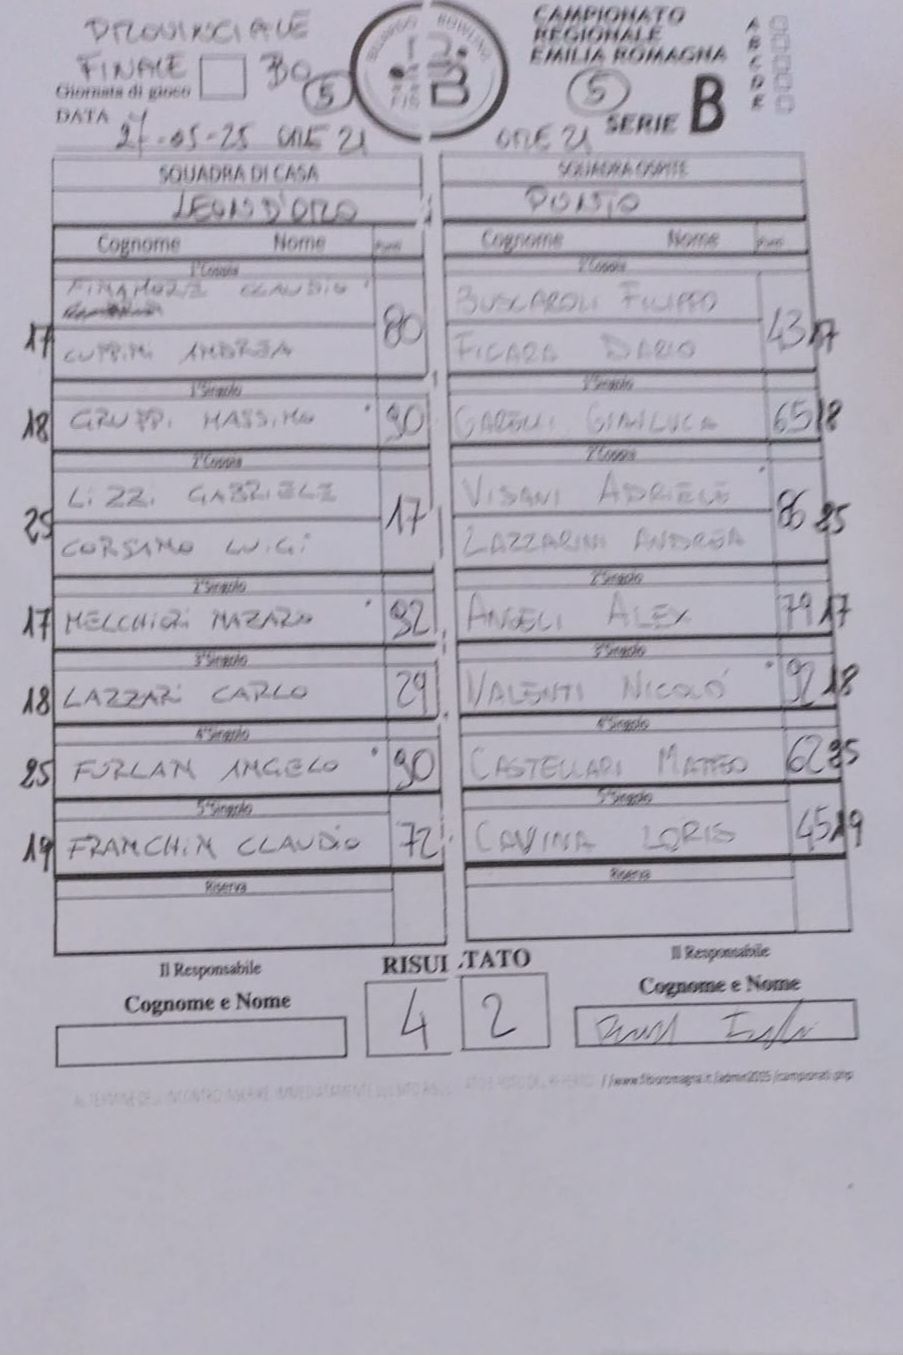 PROVINCIALE
FINALE BO 5
Giornata di gioco
DATA 27-05-25 ORE 21
BILIARDO BOWLING
FIB
CAMPIONATO
REGIONALE
EMILIA ROMAGNA
A
B
C
D
E
5
ORE 21 SERIE B
SQUADRA DI CASA SQUADRA OSPITE
LEON D'ORO PUNTO
Cognome Nome Punti Cognome Nome Punti
1°Coppia 1°Coppia
FINAMORE CLAUDIO BUSCAROLI FILIPPO
17 80 43 17
CUPPINI ANDREA FICARA DARIO
1°Singolo 1°Singolo
18 GRUPPI MASSIMO 90 GIANLUCA 65 18
2°Coppia 2°Coppia
LIZZI GABRIELE VISANI ADRIELE
25 17 86 25
CORSANO LUIGI LAZZARINI ANDREA
2°Singolo 2°Singolo
17 MELCHIORI NAZARIO 92 ANGELI ALEX 79 17
3°Singolo 3°Singolo
18 LAZZARI CARLO 29 VALENTI NICOLÒ 92 18
4°Singolo 4°Singolo
25 FURLAN ANGELO 90 CASTELLARI MATTEO 62 25
5°Singolo 5°Singolo
19 FRANCHINI CLAUDIO 72 CAVINA LORIS 45 19
Riserva Riserva
Il Responsabile RISULTATO Il Responsabile
Cognome e Nome 4 2 Cognome e Nome